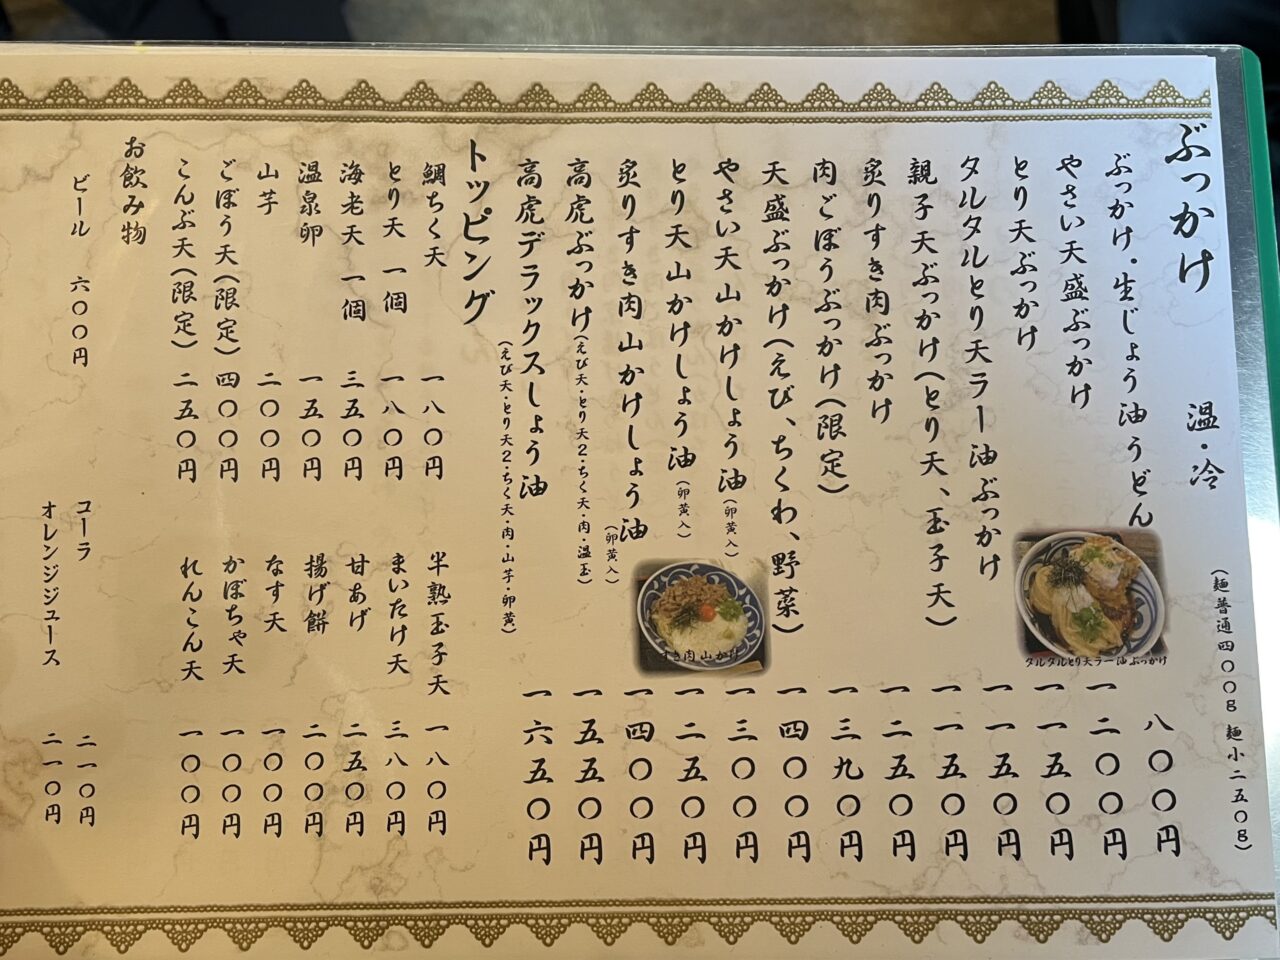 ぶっかけ 温・冷 (麺普通四〇〇g 麺小二五〇g)
ぶっかけ・生じょう油うどん 八〇〇円
やさい天盛ぶっかけ 一二〇〇円
とり天ぶっかけ 一一五〇円
タルタルとり天ラー油ぶっかけ 一一五〇円
親子天ぶっかけ(とり天、玉子天) 一一五〇円
炙りすき肉ぶっかけ 一二五〇円
肉ごぼうぶっかけ(限定) 一三九〇円
天盛ぶっかけ(えび、ちくわ、野菜) 一四〇〇円
やさい天山かけしょう油(卵黄入) 一三〇〇円
とり天山かけしょう油(卵黄入) 一二五〇円
炙りすき肉山かけしょう油(卵黄入) 一四〇〇円
高虎ぶっかけ(えび天・とり天2・ちく天・肉・温玉) 一五五〇円
高虎デラックスしょう油(えび天・とり天2・ちく天・肉・山芋・卵黄) 一六五〇円
タルタルとり天ラー油ぶっかけ
すき肉山かけ
トッピング
鯛ちく天 一八〇円
とり天 一個 一八〇円
海老天 一個 三五〇円
温泉卵 一五〇円
山芋 二〇〇円
ごぼう天(限定) 四〇〇円
こんぶ天(限定) 二五〇円
半熟玉子天 一八〇円
まいたけ天 三八〇円
甘あげ 二五〇円
揚げ餅 二〇〇円
なす天 一〇〇円
かぼちゃ天 一〇〇円
れんこん天 一〇〇円
お飲み物
ビール 六〇〇円
コーラ 二一〇円
オレンジジュース 二一〇円